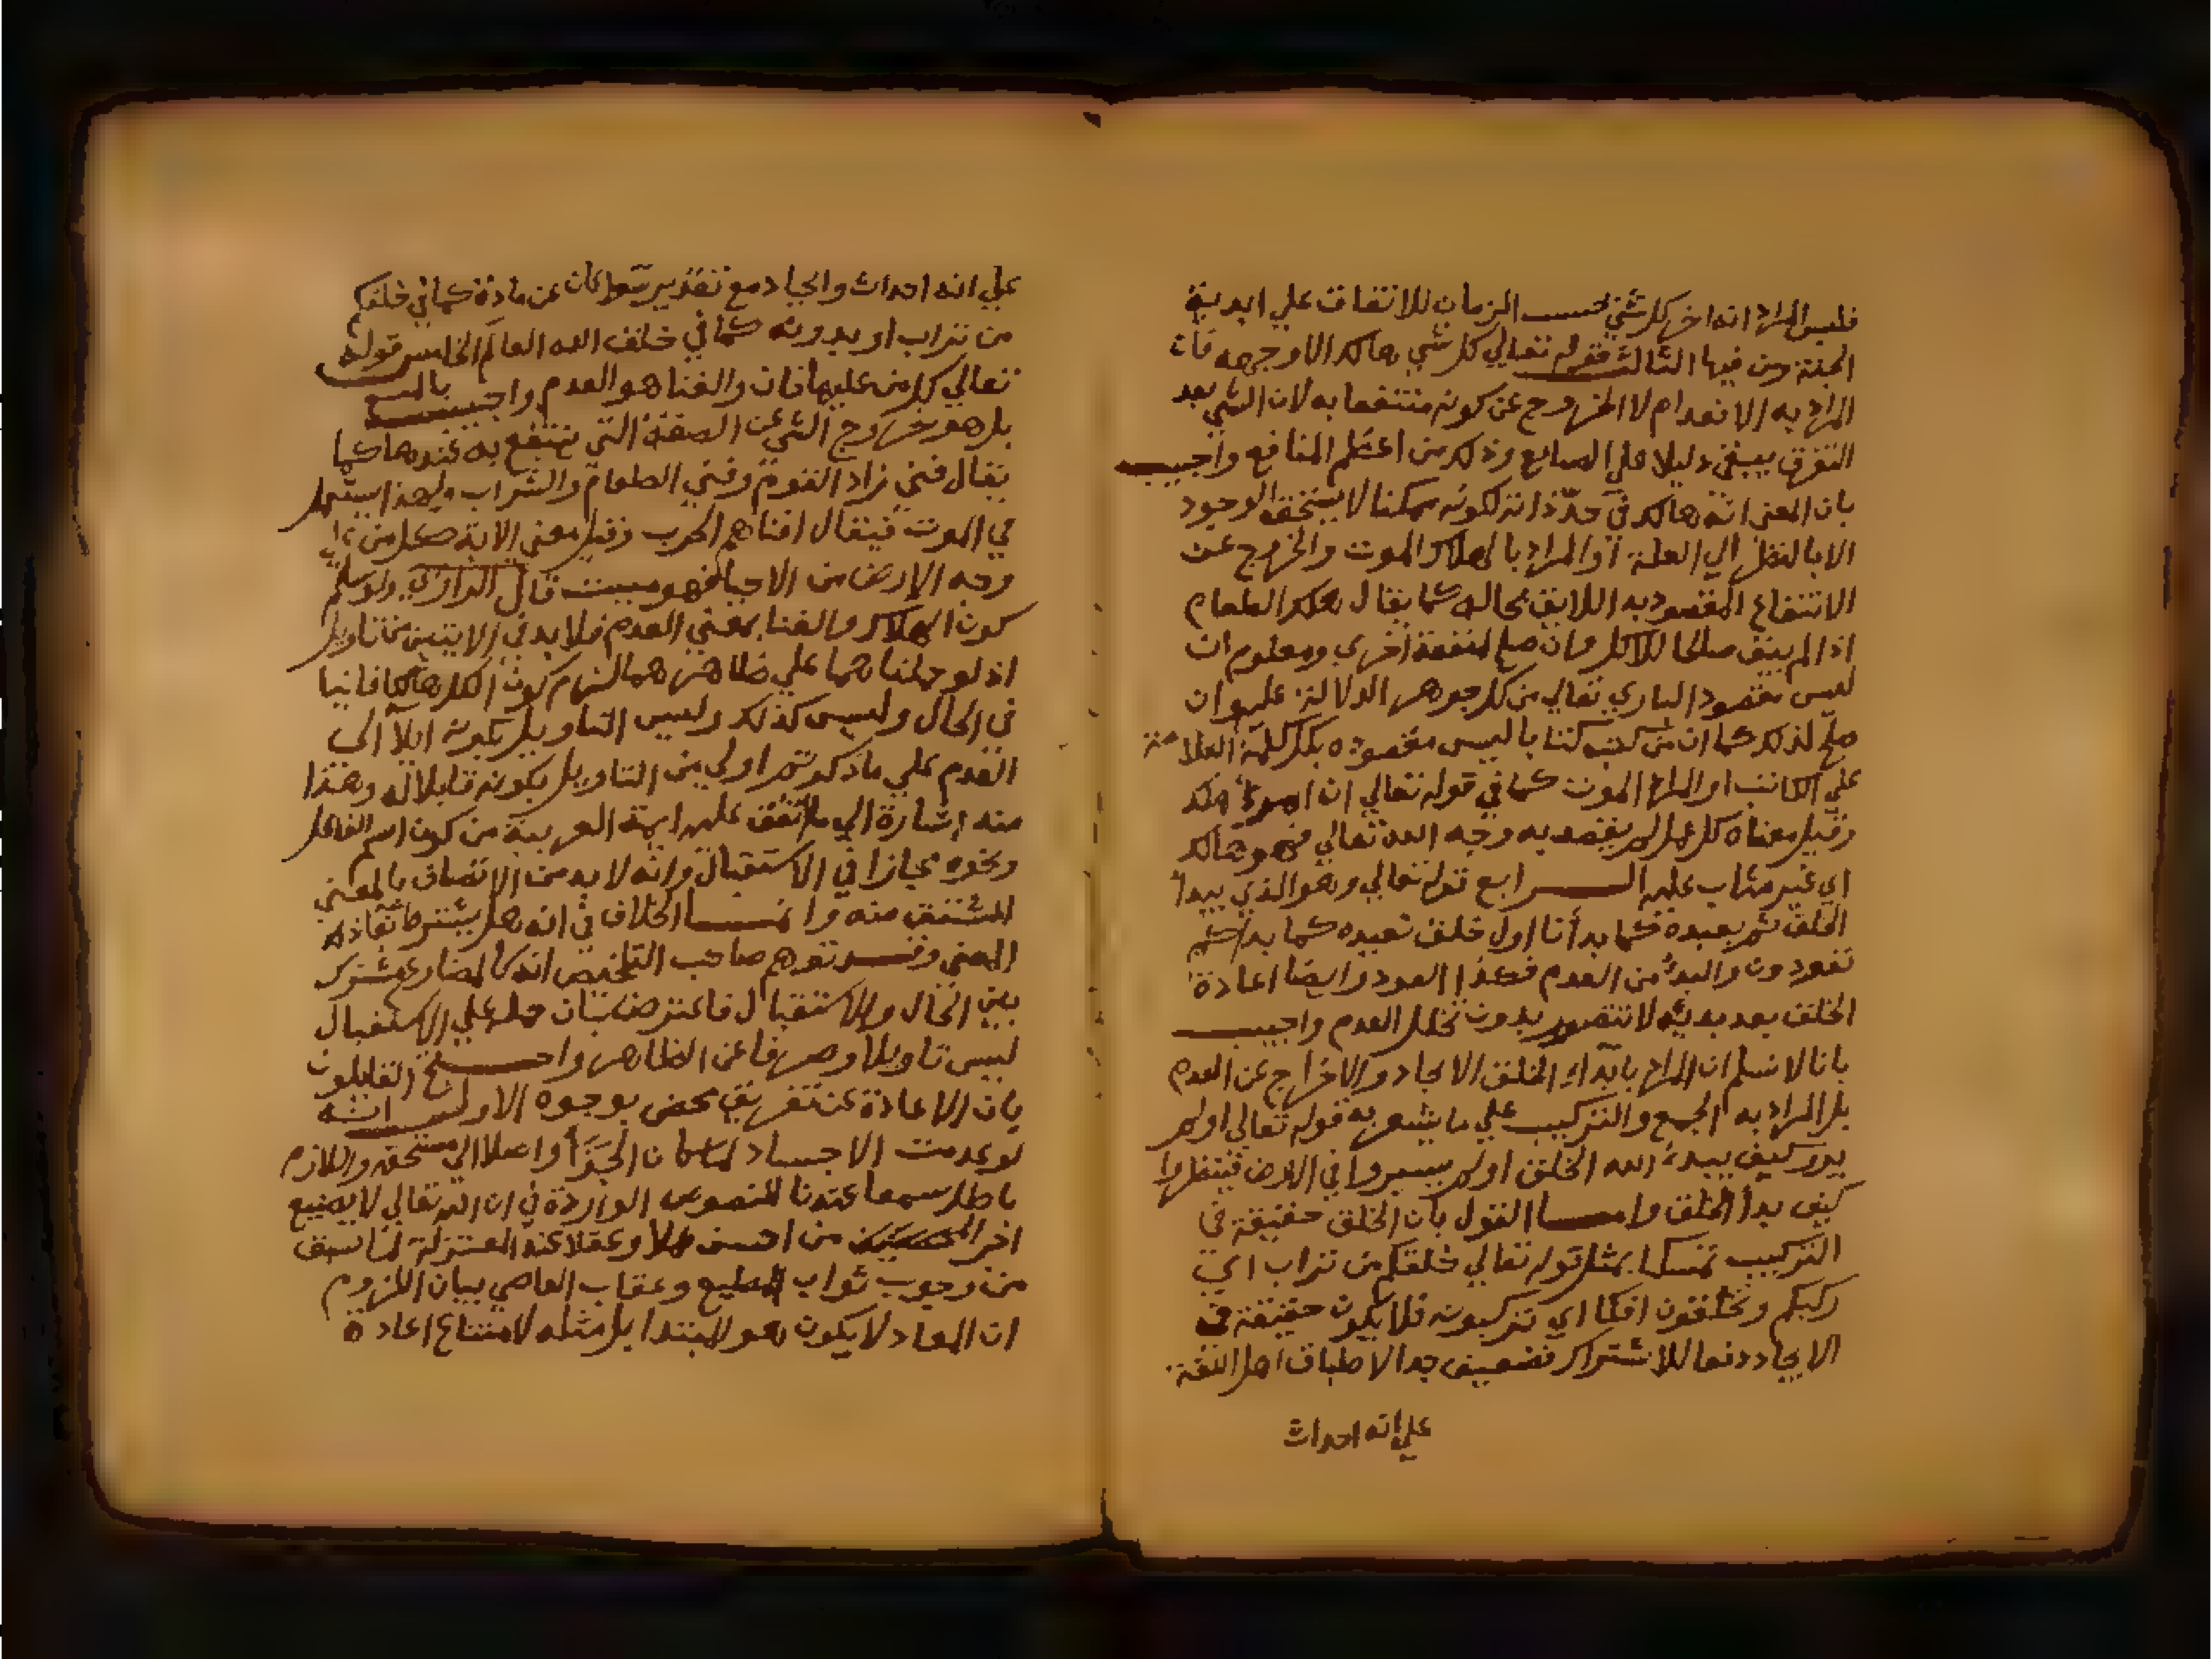 فليس المراد انه اخر كل شي بحسب الزمان للاتفاق علي ابدية
الجنة ومن فيها الثالث قوله تعالي كل شي هالك الا وجهه فان
المراد به الانعدام لا الخروج عن كونه منتفعا به لان الشي بعد
التفرق يبقي دليلا علي الصانع وذلك من اعظم المنافع واجيب
بان المعني انه هالك في حدّ ذاته لكونه ممكنا لا يستحق الوجود
الا بالنظر الي العلة او المراد بالهلاك الموت والخروج عن
الانتفاع المقصود به اللايق بحاله كما يقال هلك الطعام
اذا لم يبق صالحا للاكل وان صلح لمنفعة اخري ومعلوم ان
ليس مقصود الباري تعالي من كل جوهر الدلالة عليه وان
صلح لذلك كما ان من كتب كتبا ليس مقصوده بكل كلمة الدلالة
علي الكاتب او المراد الموت كما في قوله تعالي ان امرؤ هلك
وقيل معناه كل عمل لم يقصد به وجه الله تعالي فهو هالك
اي غير مثاب عليه الرابع قوله تعالي وهو الذي يبدأ
الخلق ثم يعيده كما بدأنا اول خلق نعيده كما بداكم
تعودون والبدء من العدم فكذا العود وايضا اعادة
الخلق بعد بدئه لا تتصور بدون تخلل العدم واجيب
بانا لا نسلم ان المراد بابداء الخلق الايجاد والاخراج عن العدم
بل المراد به الجمع والتركيب علي ما يشعر به قوله تعالي اولم
يروا كيف يبدئ الله الخلق اولم يسيروا في الارض فينظروا
كيف بدأ الخلق واما القول بان الخلق حقيقة في
التركيب تمسكا بمثل قوله تعالي خلقكم من تراب اي
ركبكم وتخلقون افكا اي تركبونه فلا يكون حقيقة في
الايجاد دفعا للاشتراك فضعيف جدا لاطباق اهل اللغة
علي انه احداث
علي انه احداث وايجاد مع تقدير سوا كان عن مادة كما في خلقكم
من تراب او بدونه كما في خلق الله العالم الخامس قوله
تعالي كل من عليها فان والفنا هو العدم واجيب بالمنع
بل هو خروج الشي عن الصفة التي ينتفع به عندها كما
يقال فني زاد القوم وفني الطعام والشراب ولهذا يستعمل
في الموت فيقال افناهم الحرب وقيل معني الاية كل من علي
وجه الارض من الاحيا فهو ميت قال الرازي ولو سلم
كون الهلاك والفنا بمعني العدم فلا بد في الايتين من تاويل
اذ لو حملناهما علي ظاهرهما لزم كون الكل هالكا فانيا
في الحال وليس كذلك وليس التاويل بكونه ايلا الي
العدم علي ما ذكرتم اولي من التاويل بكونه قابلا له وهذا
منه اشارة الي ما اتفق عليه ايمة العربية من كون اسم الفاعل
ونحوه مجازا في الاستقبال وانه لا بد من الاتصاف بالمعني
المشتق منه وانما الخلاف في انه هل يشترط بقا ذلك
المعني وقد توهم صاحب التلخيص انه كالمضارع مشترك
بين الحال والاستقبال فاعترض بان حمله علي الاستقبال
ليس تاويلا وصرفا عن الظاهر واحتج القايلون
بان الاعادة عن تفريق محض بوجوه الاول انه
لو عدمت الاجساد لما كان الجزأ واصلا الي مستحقه واللازم
باطل سمعا عندنا للنصوص الواردة في ان الله تعالي لا يضيع
اجر من احسن عملا وعقلا عند المعتزلة لما سبق
من وجوب ثواب المطيع وعقاب العاصي بيان اللزوم
ان المعاد لا يكون هو المبتدا بل مثله لامتناع اعادة